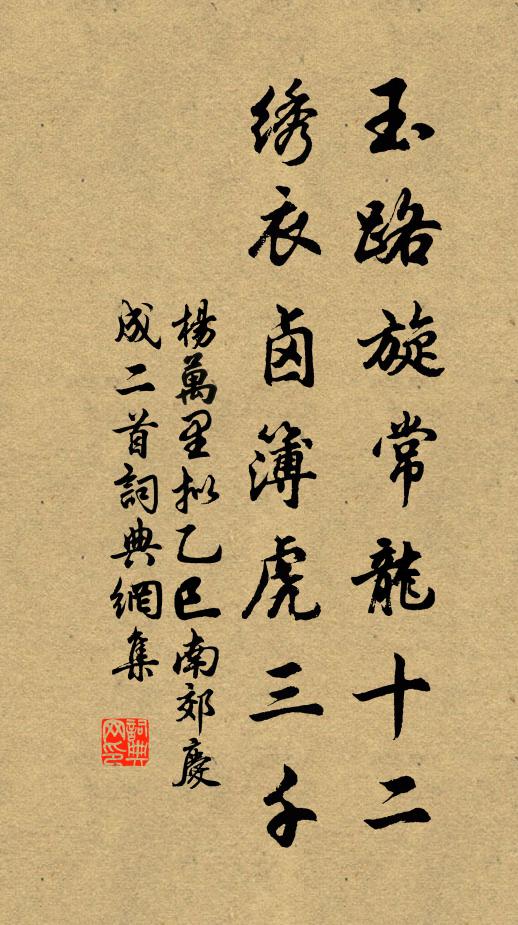 玉路旋常龍十二
绣衣卤簿虎三千
楊萬里拟乙巳南郊慶
成二首詞典網集
詞典
网印